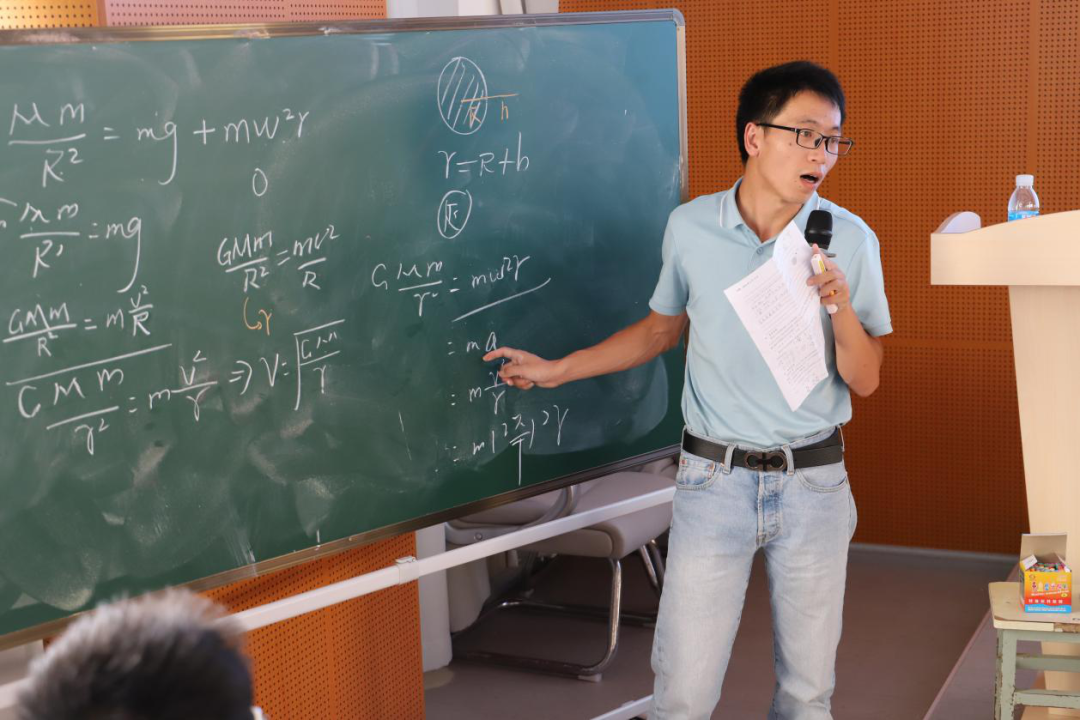 Mm/R² = mg + mw²r
0
Mm/R² = mg
GMm/R² = m v²/R
GMm/r² = m v²/r ⇒ V = √(GM/r)
GMm/R² = mv²/R
r
R h
r = R + h
GMm/r² = mw²r
= ma
= m v²/r
= m(2π/T)²r